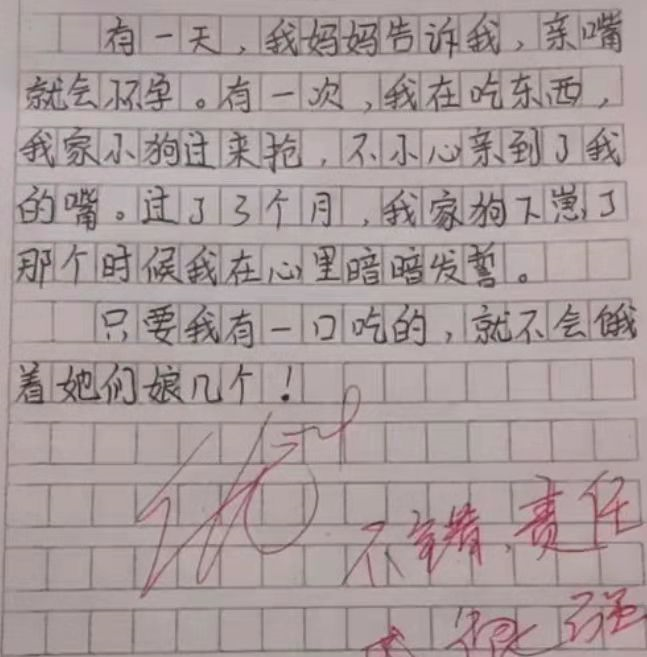 有一天，我妈妈告诉我，亲嘴
就会怀孕。有一次，我在吃东西，
我家小狗过来抢，不小心亲到了我
的嘴。过了3个月，我家狗下崽了
那个时候我在心里暗暗发誓。
只要我有一口吃的，就不会饿
着她们娘几个！
不错，责任
很强